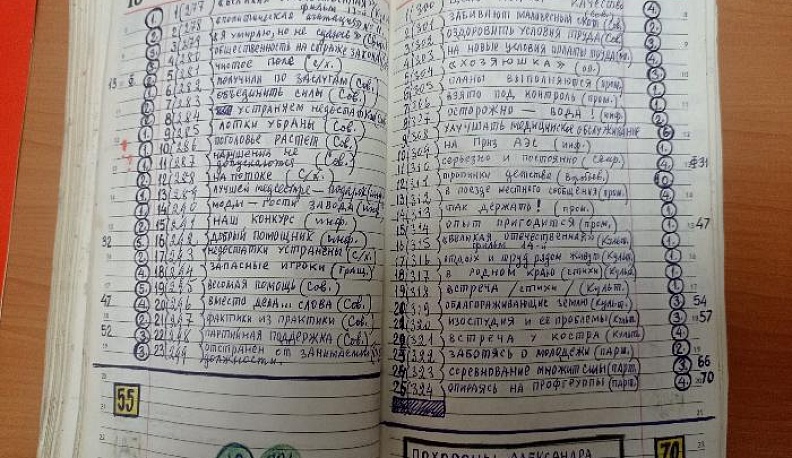 1 277
фильм
2 278 политическая агитация
3 279 «Я умираю, но не сдаюсь»
4 280 общественность на страже закона
5 281 чистое поле (с/х.)
6 282 получили по заслугам (Сов.)
7 283 объединить силы (Сов.)
8 284 устраняем недостатки
9 285 лотки убраны (Сов.)
10 286 поголовье растет (Сов.)
11 287 нарушения не допускаются (Сов.)
12 288 на потоке (с/х.)
13 289 лучшей медсестре — подарок (инф.)
14 290 моды — гости завода (инф.)
15 291 наш конкурс (инф.)
92 16 292 добрый помощник (инф.)
17 293 недостатки устранены (с/х.)
18 294 запасные игроки (гращ.)
19 295 весомая помощь (Сов.)
47 20 296 вместо дела... слова (Сов.)
21 297 фактики из практики (Сов.)
52 22 298 партийная поддержка (Сов.)
23 299 отстранен от занимаемой должности.
55
300 качество
2 301 забивают малочесный скот (Сов.)
3 302 оздоровить условия труда (Сов.)
303 на новые условия оплаты труда
304 «хозяюшка»
305 планы выполняются (пром.)
306 взято под контроль (пром.)
8 307 осторожно — вода! (инф.)
9 308 улучшать медицинское обслуживание 6
10 309 на приз АЭС (инф.)
11 310 серьезно и постоянно 4 31
12 311 тропинки детства
13 312 в поезде местного сообщения (пром.)
14 313 так держать! (пром.)
15 314 опыт пригодится (пром.) 47
16 315 «Великая отечественная» фильм 14-й (культ.)
17 316 отдых и труд рядом живут (культ.)
18 317 в родном краю (стихи) (культ.)
19 318 встреча /стихи/ (культ.)
20 319 облагораживающие землю (культ.) 3 54
21 320 изостудия и её проблемы (культ.) 3 57
321 встреча у костра (культ.)
322 заботясь о молодежи (парт.) 2
323 соревнование множит силы (парт.) 3 66
324 опираясь на профгруппы (парт.) 4 70
ПОХОРОНЫ АЛЕКСАНДРА
70